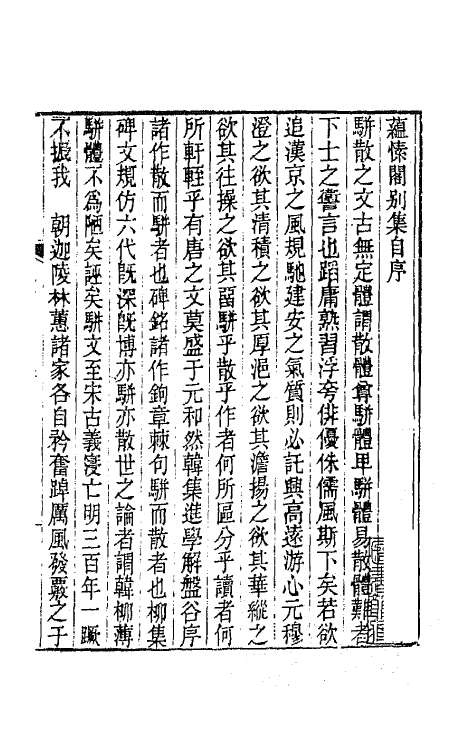 蘊愫閣別集自序
駢散之文古無定體謂散體尊駢體卑駢體易散體難者
下士之讆言也蹈庸熟習浮夸俳優侏儒風斯下矣若欲
追漢京之風規馳建安之氣質則必託興高遠游心元穆
澄之欲其清積之欲其厚浥之欲其澹揚之欲其華縱之
欲其往操之欲其畱駢乎散乎作者何所區分乎讀者何
所軒輊乎有唐之文莫盛于元和然韓集進學解盤谷序
諸作散而駢者也碑銘諸作鉤章棘句駢而散者也柳集
碑文規仿六代旣深旣博亦駢亦散世之論者謂韓柳薄
駢體不爲陋矣誣矣駢文至宋古義寖亡明三百年一蹶
不振我　朝迦陵林蕙諸家各自矜奮踔厲風發覈之于